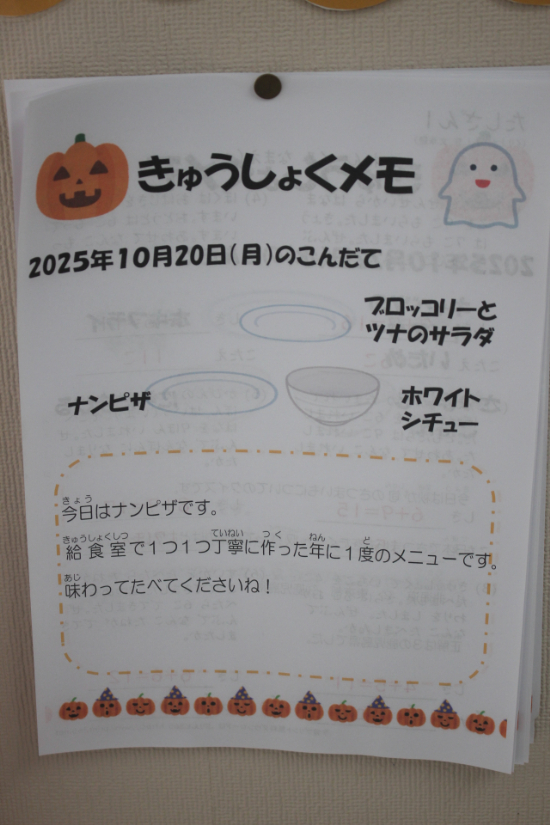 きゅうしょくメモ
2025年10月20日(月)のこんだて
ブロッコリーと
ツナのサラダ
ナンピザ
ホワイト
シチュー
きょう
今日はナンピザです。
きゅうしょくしつ ていねい つく ねん ど
給食室で1つ1つ丁寧に作った年に1度のメニューです。
あじ
味わってたべてくださいね!